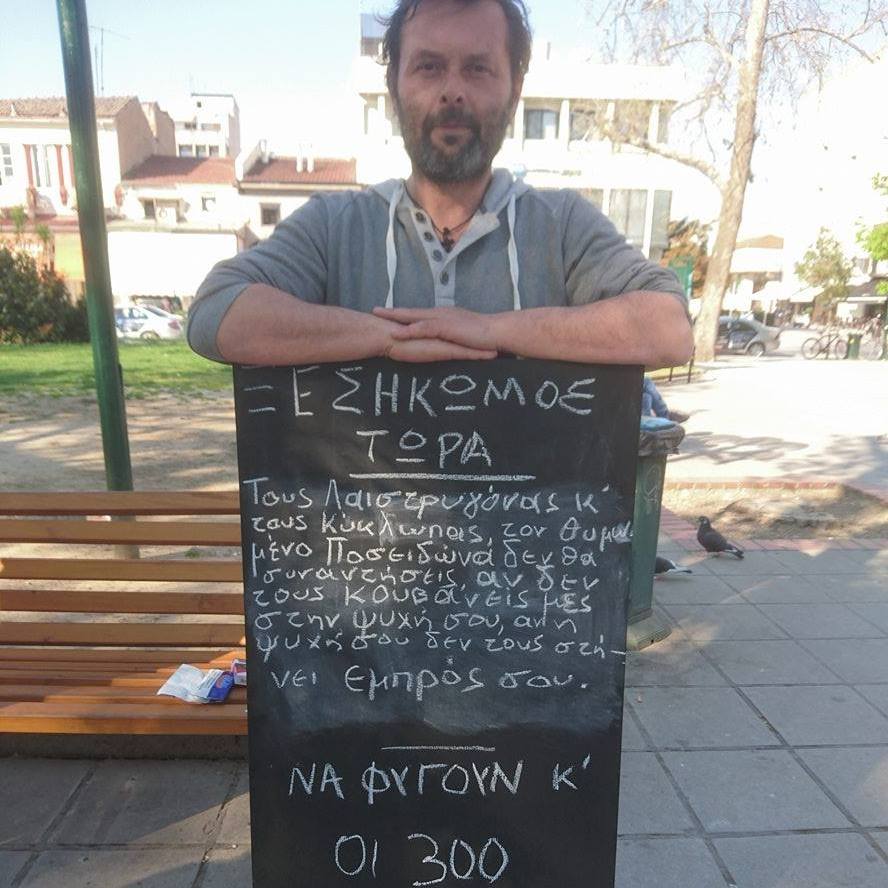 ΞΕΣΗΚΩΜΟΣ
ΤΩΡΑ
Τους Λαιστρυγόνας κ'
τους Κύκλωπας, τον θυμω
μένο Ποσειδώνα δεν θα
συναντήσεις, αν δεν
τους κουβανείς μες
στην ψυχή σου, αν η
ψυχή σου δεν τους στή-
νει εμπρός σου.
ΝΑ ΦΥΓΟΥΝ Κ'
ΟΙ 300